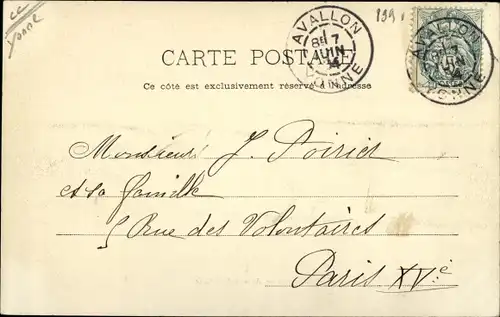 CARTE POSTALE
Ce côté est exclusivement réservé à l'adresse
AVALLON
8E 7
JUIN
YONNE
AVALLON
7
JUIN
YONNE
139
Monsieur J. Poirier
et sa famille
5 Rue des Volontaires
Paris XVe